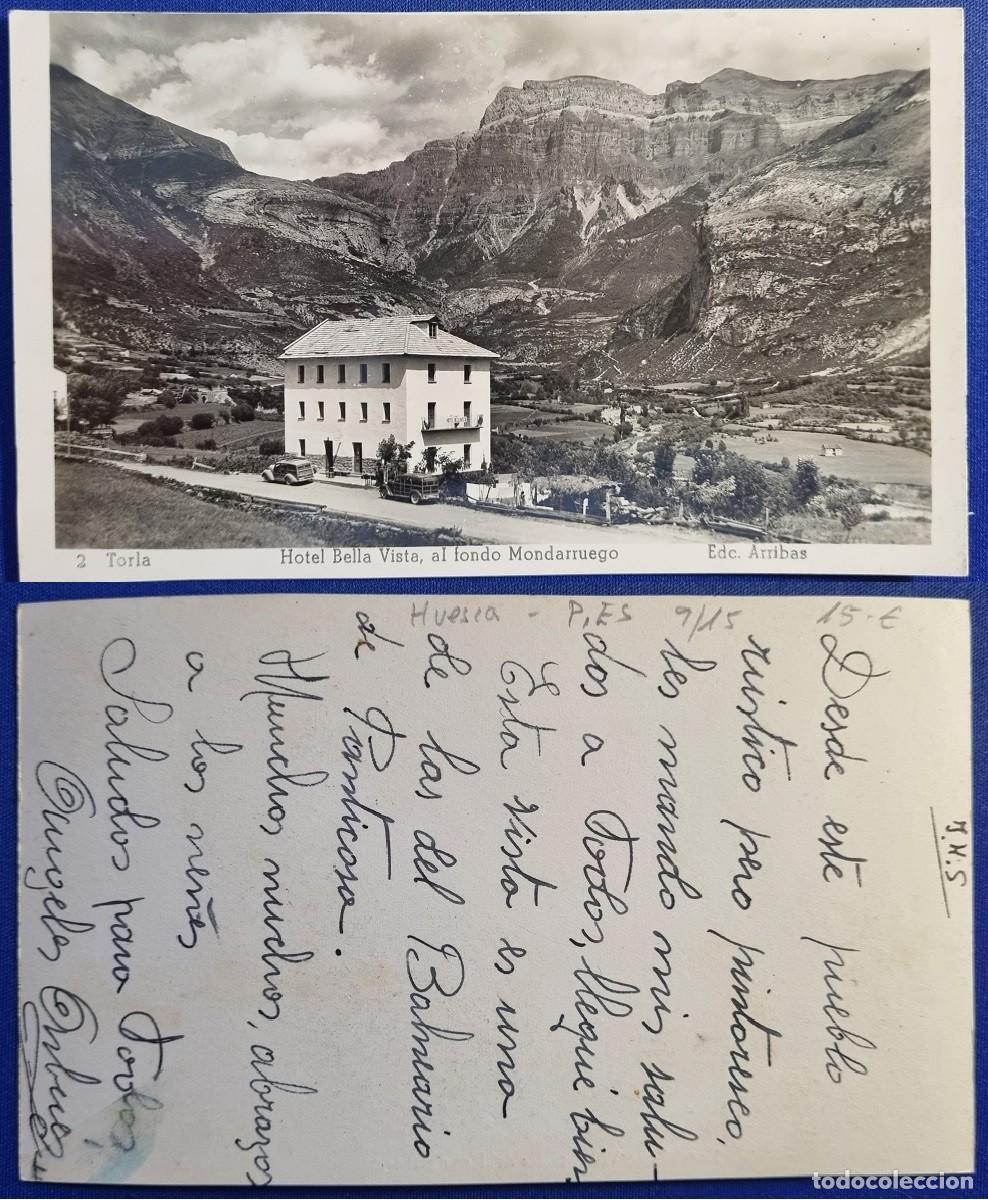 2 Torla
Hotel Bella Vista, al fondo Mondarruego
Edc. Arribas
Huesca - P.ES 9/15 15-€
J.N.S
Desde este pueblo
rústico pero pintoresco,
les mando mis salu-
dos a todos, llegué bien
Esta vista es una
de las del Balneario
de Panticosa.
Muchos, muchos, abrazos
a los neñes
Saludos para todos,
Angeles
todocoleccion